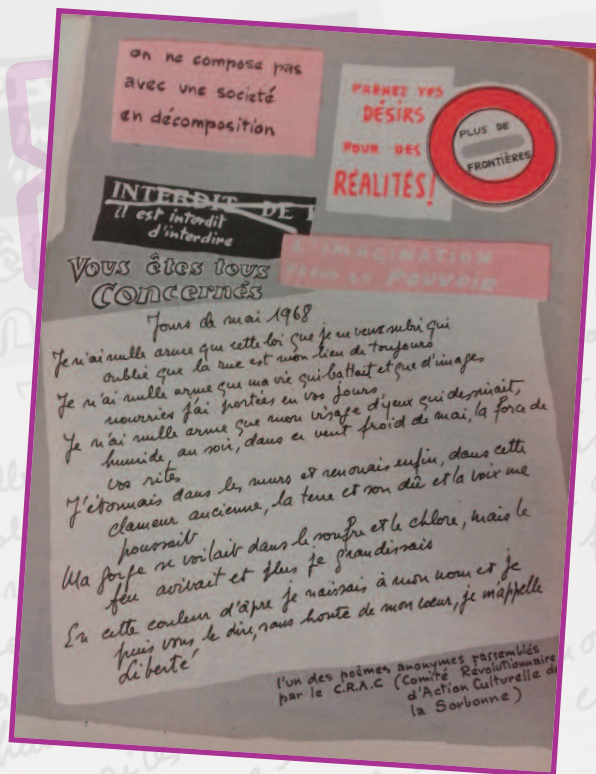 on ne compose pas
avec une societé
en décomposition
PRENEZ VOS
DÉSIRS
POUR DES
RÉALITÉS!
PLUS DE
FRONTIÈRES
INTERDIT DE
il est interdit
d'interdire
L'IMAGINATION
PREND LE POUVOIR
Vous êtes tous
concernés
Jours de mai 1968
Je n'ai nulle arme que cette loi que je ne veux subir qui
oublié que la rue est mon lieu de toujours
Je n'ai nulle arme que ma vie qui battait et que d'images
nourries j'ai portées en vos jours
Je n'ai nulle arme que mon visage d'yeux qui dessinait,
humide, au soir, dans ce vent froid de mai, la force de
vos rites
J'étonnais dans les murs et renouais enfin, dans cette
clameur ancienne, la terre et son dû et la voix me
poussait
Ma gorge se voilait dans le soufre et le chlore, mais le
feu avivait et plus je grandissais
En cette couleur d'âpre je naissais à mon nom et je
puis vous le dire, sans honte de mon cœur, je m'appelle
Liberté
l'un des poèmes anonymes rassemblés
par le C.R.A.C (Comité Révolutionnaire
d'Action Culturelle de
la Sorbonne)